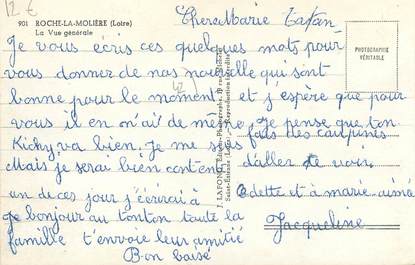 12 €
901 ROCHE-LA-MOLIÈRE (Loire)
La Vue générale
Chere Marie Tatan
Je vous écris ces quelques mots pour
vous donner de nos nouvelle qui sont
bonne pour le moment et j'espère que pour
vous il en n'ai de même Je pense que ton
Kichy va bien. Je me suis
fais des copines
Mais je serai bien contente
d'aller te voir.
un de ces jour j'écrirai à
Odette et à marie aimé
Je bonjour au tonton toute la
famille t'envoie leur amitié
Jacqueline
Bon baisé
PHOTOGRAPHIE
VÉRITABLE
J. LAFOND, Éditeur-Photographe,
Saint-Étienne (Loire) - Reproduction interdite